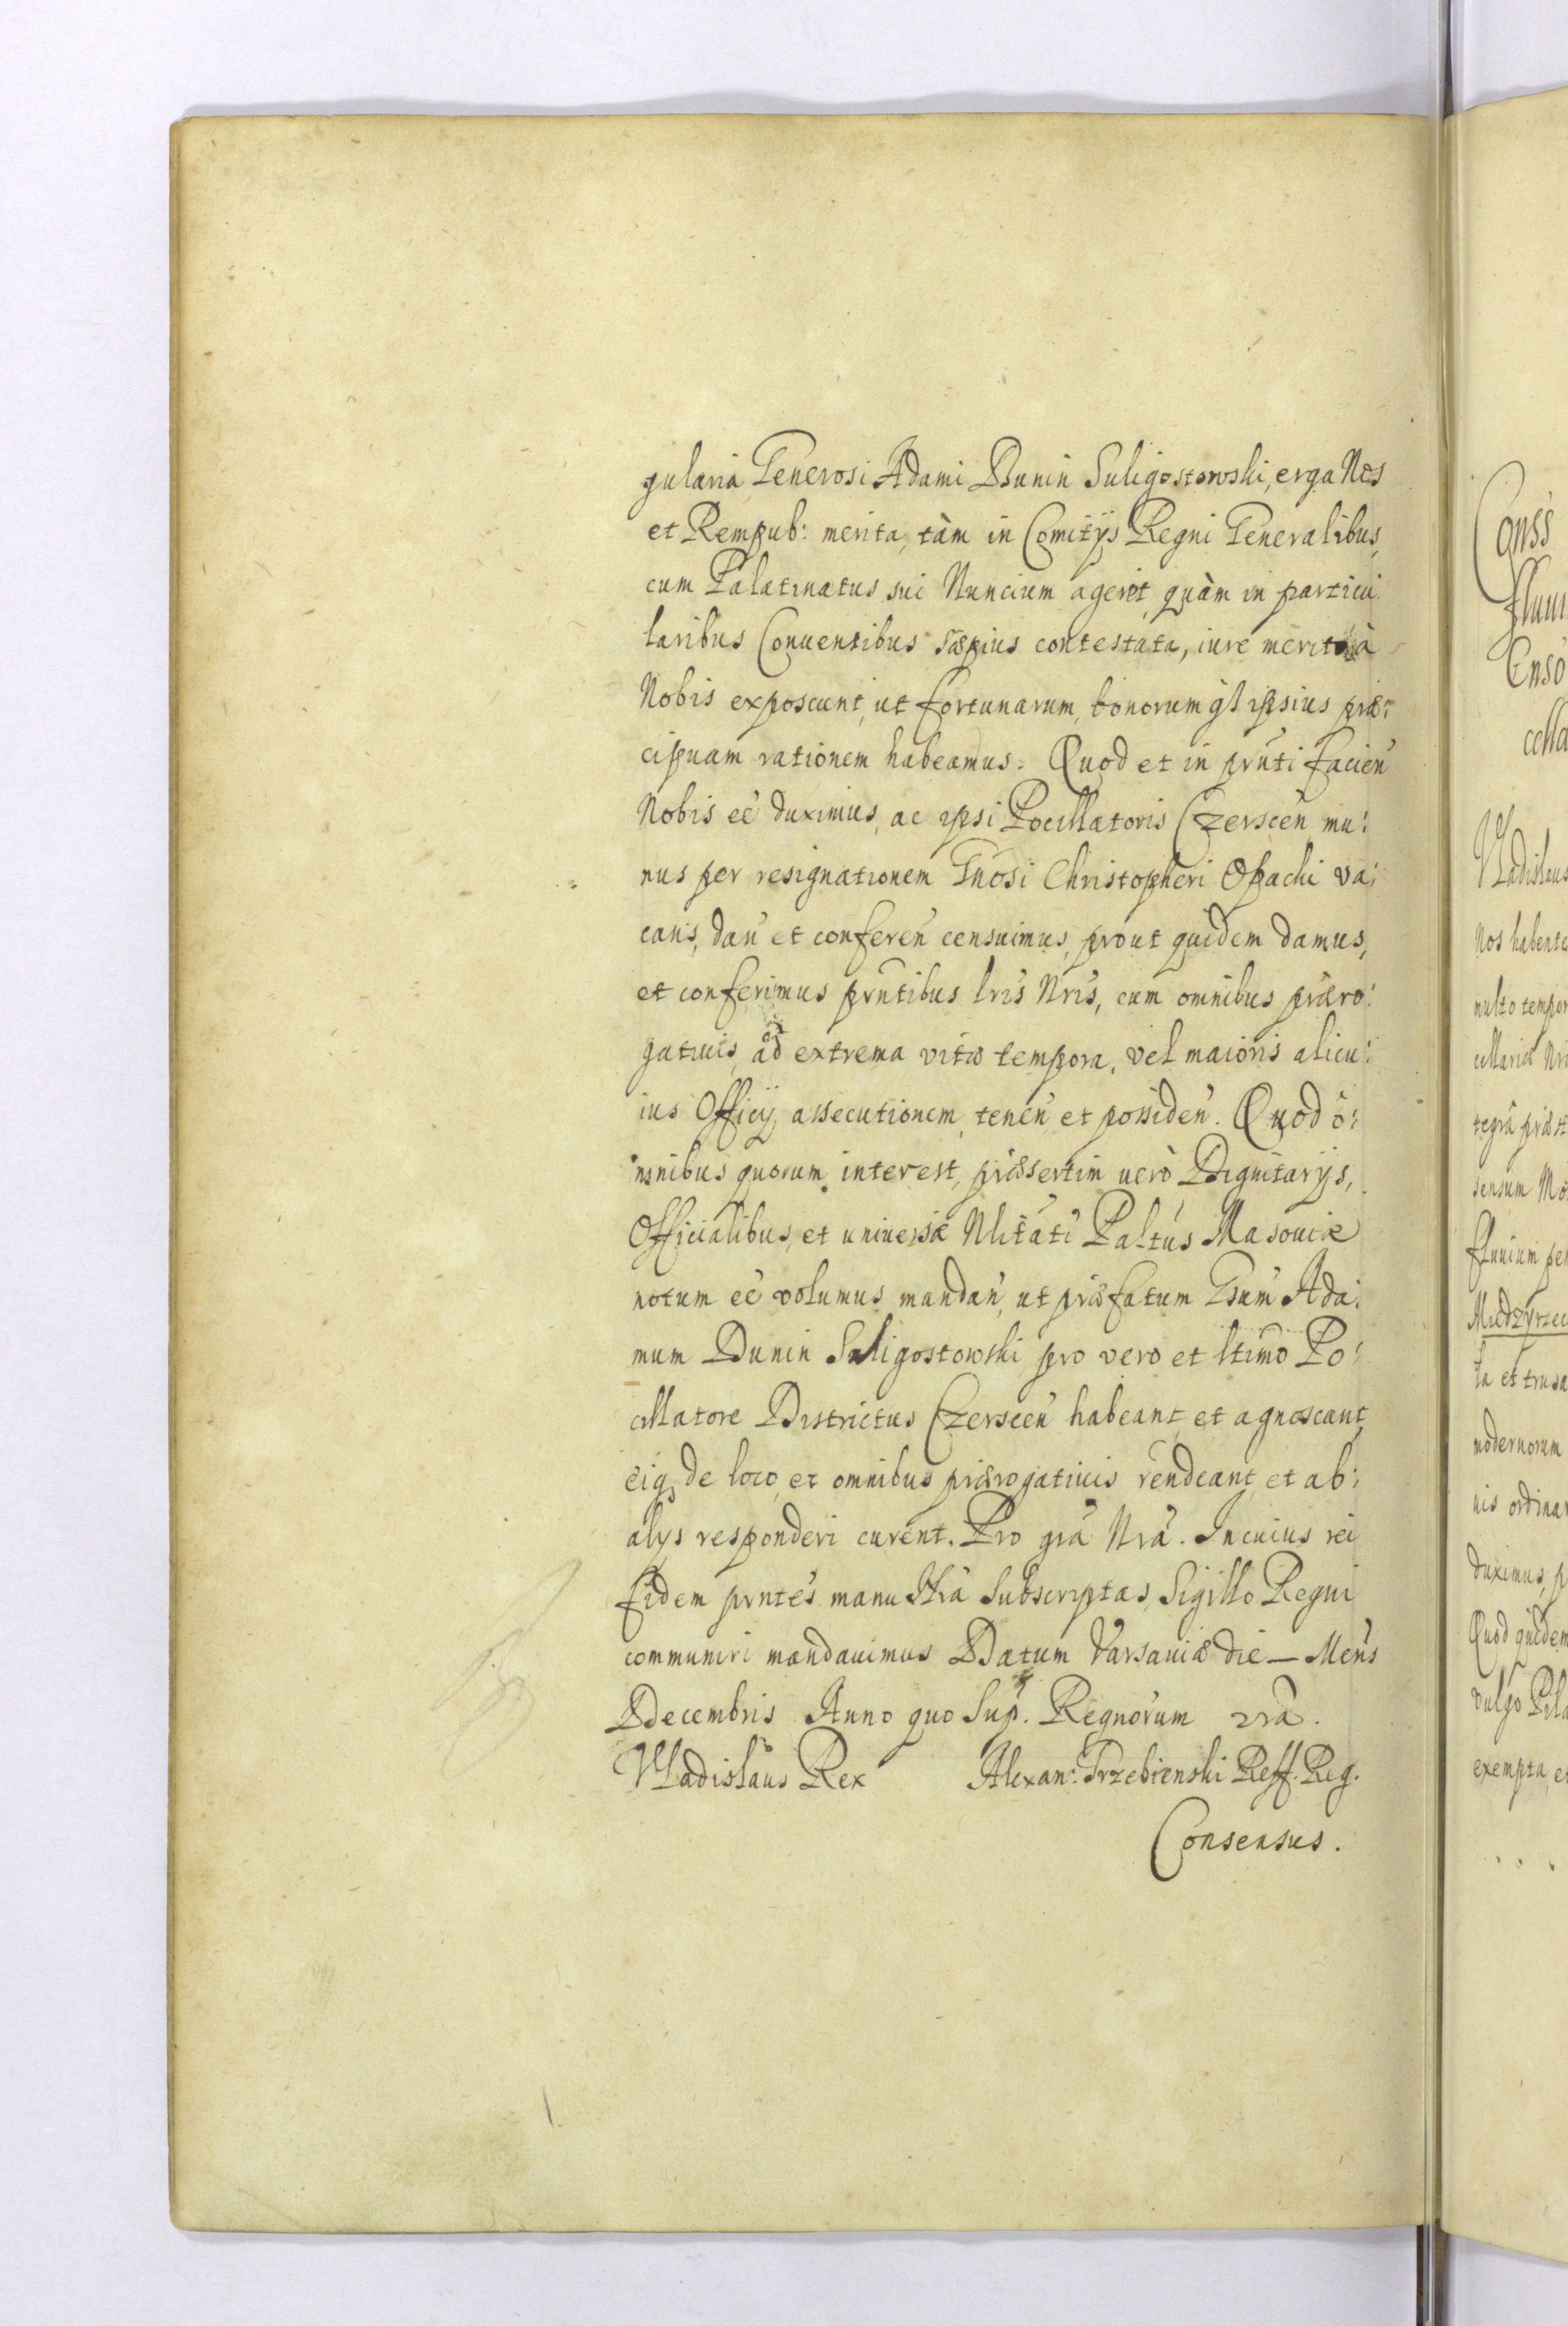 gularia Generosi Adami Dunin Suligostowski, erga Nos
et Rempub: merita, tàm in Comitijs Regni Generalibus,
cum Palatinatus sui Nuncium ageret, quàm in particu:
laribus Conuentibus sæpius contestata, iure merito à
Nobis exposcunt, ut fortunarum, honorumq3 ipsius præ:
cipuam rationem habeamus. Quod et in pru̅ti facien̅
Nobis ee̅ duximus, ac ipsi Pocillatoris Czerscen̅ mu:
nus per resignationem Gn̅osi Christopheri Opacki va:
can̅s, dan̅ et conferen̅ censuimus, prout quidem damus,
et conferimus prn̅tibus lri̅s Nri̅s, cum omnibus præro:
gatiuis, ad extrema vitæ tempora, vel maioris alicu:
ius Officij, assecutionem, tenen̅ et possiden̅. Quod o̅:
mnibus quorum interest, præsertim uerò Dignitarijs,
Officialibus, et uniuersæ Nlita̅ti Palt̅us Masouiæ
notum ee̅ volumus, mandan̅, ut præfatum Gsum̅ Ada:
mum Dunin Suligostowski pro vero et ltimo̅ Po:
cillatore Districtus Czerscen̅ habeant, et agnoscant,
eiq3 de loco, et omnibus prærogatiuis rendeant̅, et ab:
alijs responderi curent. Pro gra̅ Nra̅. In cuius rei
fidem prnte̅s manu Nra̅ subscriptas, Sigillo Regni
communiri mandauimus Datum Varsauiæ die — Mens̅
Decembris Anno quo Sup. Regnorum vra̅.
Vladislaus Rex Alexan: Trzebienski Reff. Reg.
Consensus.
Conss̅
cella
Vladislaus
Nos habente
multo tempor
sensum
fluuium per
modernorum
nis ordinar
duximus, p
Quod quidem
vulgo
exempta, e